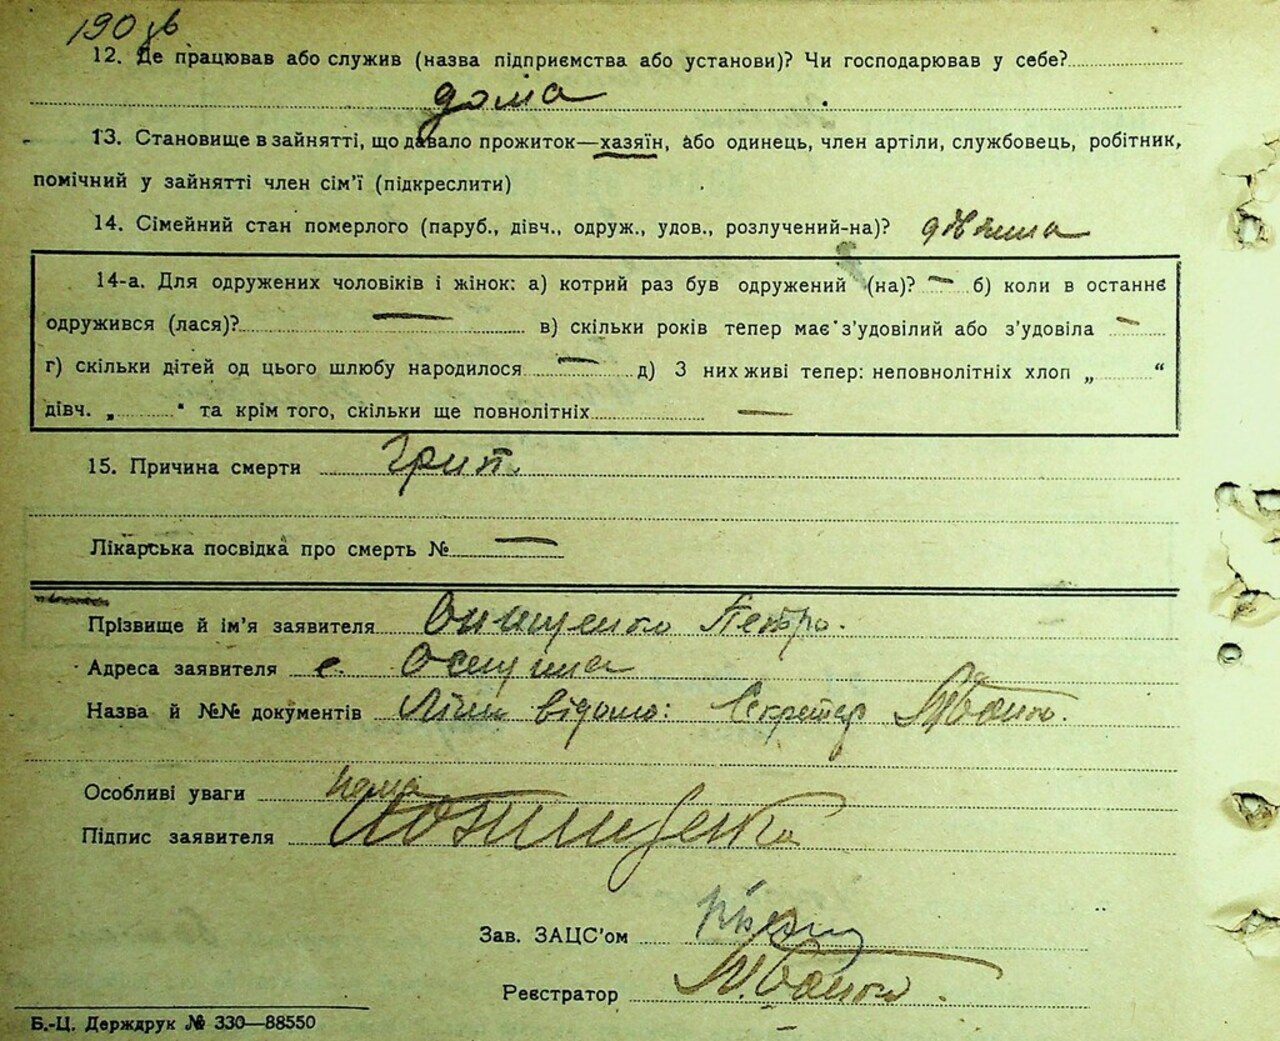 190 зв
12. Де працював або служив (назва підприємства або установи)? Чи господарював у себе?
дома
13. Становище в зайнятті, що давало прожиток—хазяїн, або одинець, член артіли, службовець, робітник,
помічний у зайнятті член сім'ї (підкреслити)
14. Сімейний стан померлого (паруб., дівч., одруж., удов., розлучений-на)? дівчина
14-а. Для одружених чоловіків і жінок: а) котрий раз був одружений (на)? — б) коли в останнє
одружився (лася)? — в) скільки років тепер має з'удовілий або з'удовіла —
г) скільки дітей од цього шлюбу народилося — д) З них живі тепер: неповнолітніх хлоп „ “
дівч. „ “ та крім того, скільки ще повнолітніх —
15. Причина смерти Грип.
Лікарська посвідка про смерть № —
Прізвище й ім'я заявителя Онищенко Петро.
Адреса заявителя с.
Назва й №№ документів Лічно відомо: Секретар
Особливі уваги нема
Підпис заявителя
Зав. ЗАЦС'ом
Реєстратор
Б.-Ц. Держдрук № 330—88550